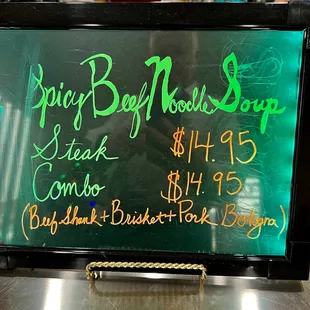 Spicy Beef Noodle Soup
Steak $14.95
Combo $14.95
(Beef Shank + Brisket + Pork Bologna)